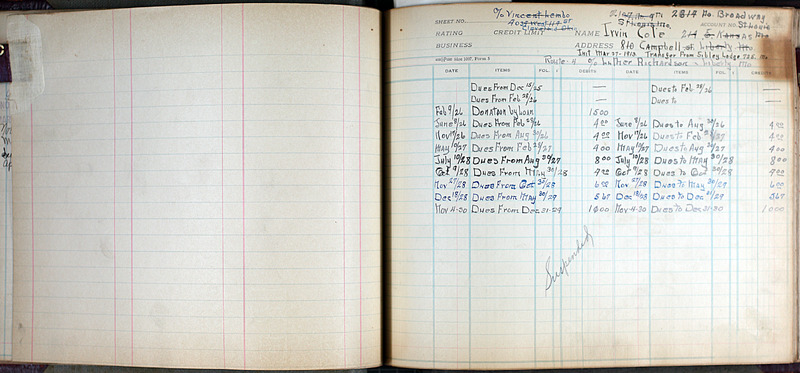 c/o Vincent Lembo 2614 No. Broadway
SHEET NO. ACCOUNT NO. St Louis
RATING CREDIT LIMIT NAME Irvin Cole 214 S. Kansas Mo
BUSINESS ADDRESS 810 Campbell st. Liberty Mo.
Init Mar-27-1913 Transfer From Sibley Lodge 722. Mo
Route-4 c/o Luther Richardson Liberty Mo
DATE ITEMS FOL. DEBITS DATE ITEMS FOL. CREDITS
Dues From Dec 15/25 — Dues to Feb 28/26 —
Dues From Feb 28/26 — Dues to —
Feb 9/26 Donation by Loan 15 00
June 8/26 Dues From Feb 28/26 4 00 June 8/26 Dues to Aug 30/26 4 00
Nov 10/26 Dues From Aug 30/26 4 00 Nov 9/26 Dues to Feb 28/27 4 00
May 10/27 Dues From Feb 28/27 4 00 May 10/27 Dues to Aug 30/27 4 00
July 10/28 Dues From Aug 30/27 8 00 July 10/28 Dues to May 30/28 8 00
Oct 9/28 Dues From May 30/28 4 00 Oct 9/28 Dues to Oct 30/28 4 00
Nov 27/28 Dues From Oct 30/28 6 00 Nov 27/28 Dues to May 30/29 6 00
Dec 18/28 Dues From May 30/29 5 67 Dec 18/28 Dues to Dec 31/29 5 67
Nov 4-30 Dues From Dec 31-29 10 00 Nov 4-30 Dues to Dec 31-30 10 00
Suspended